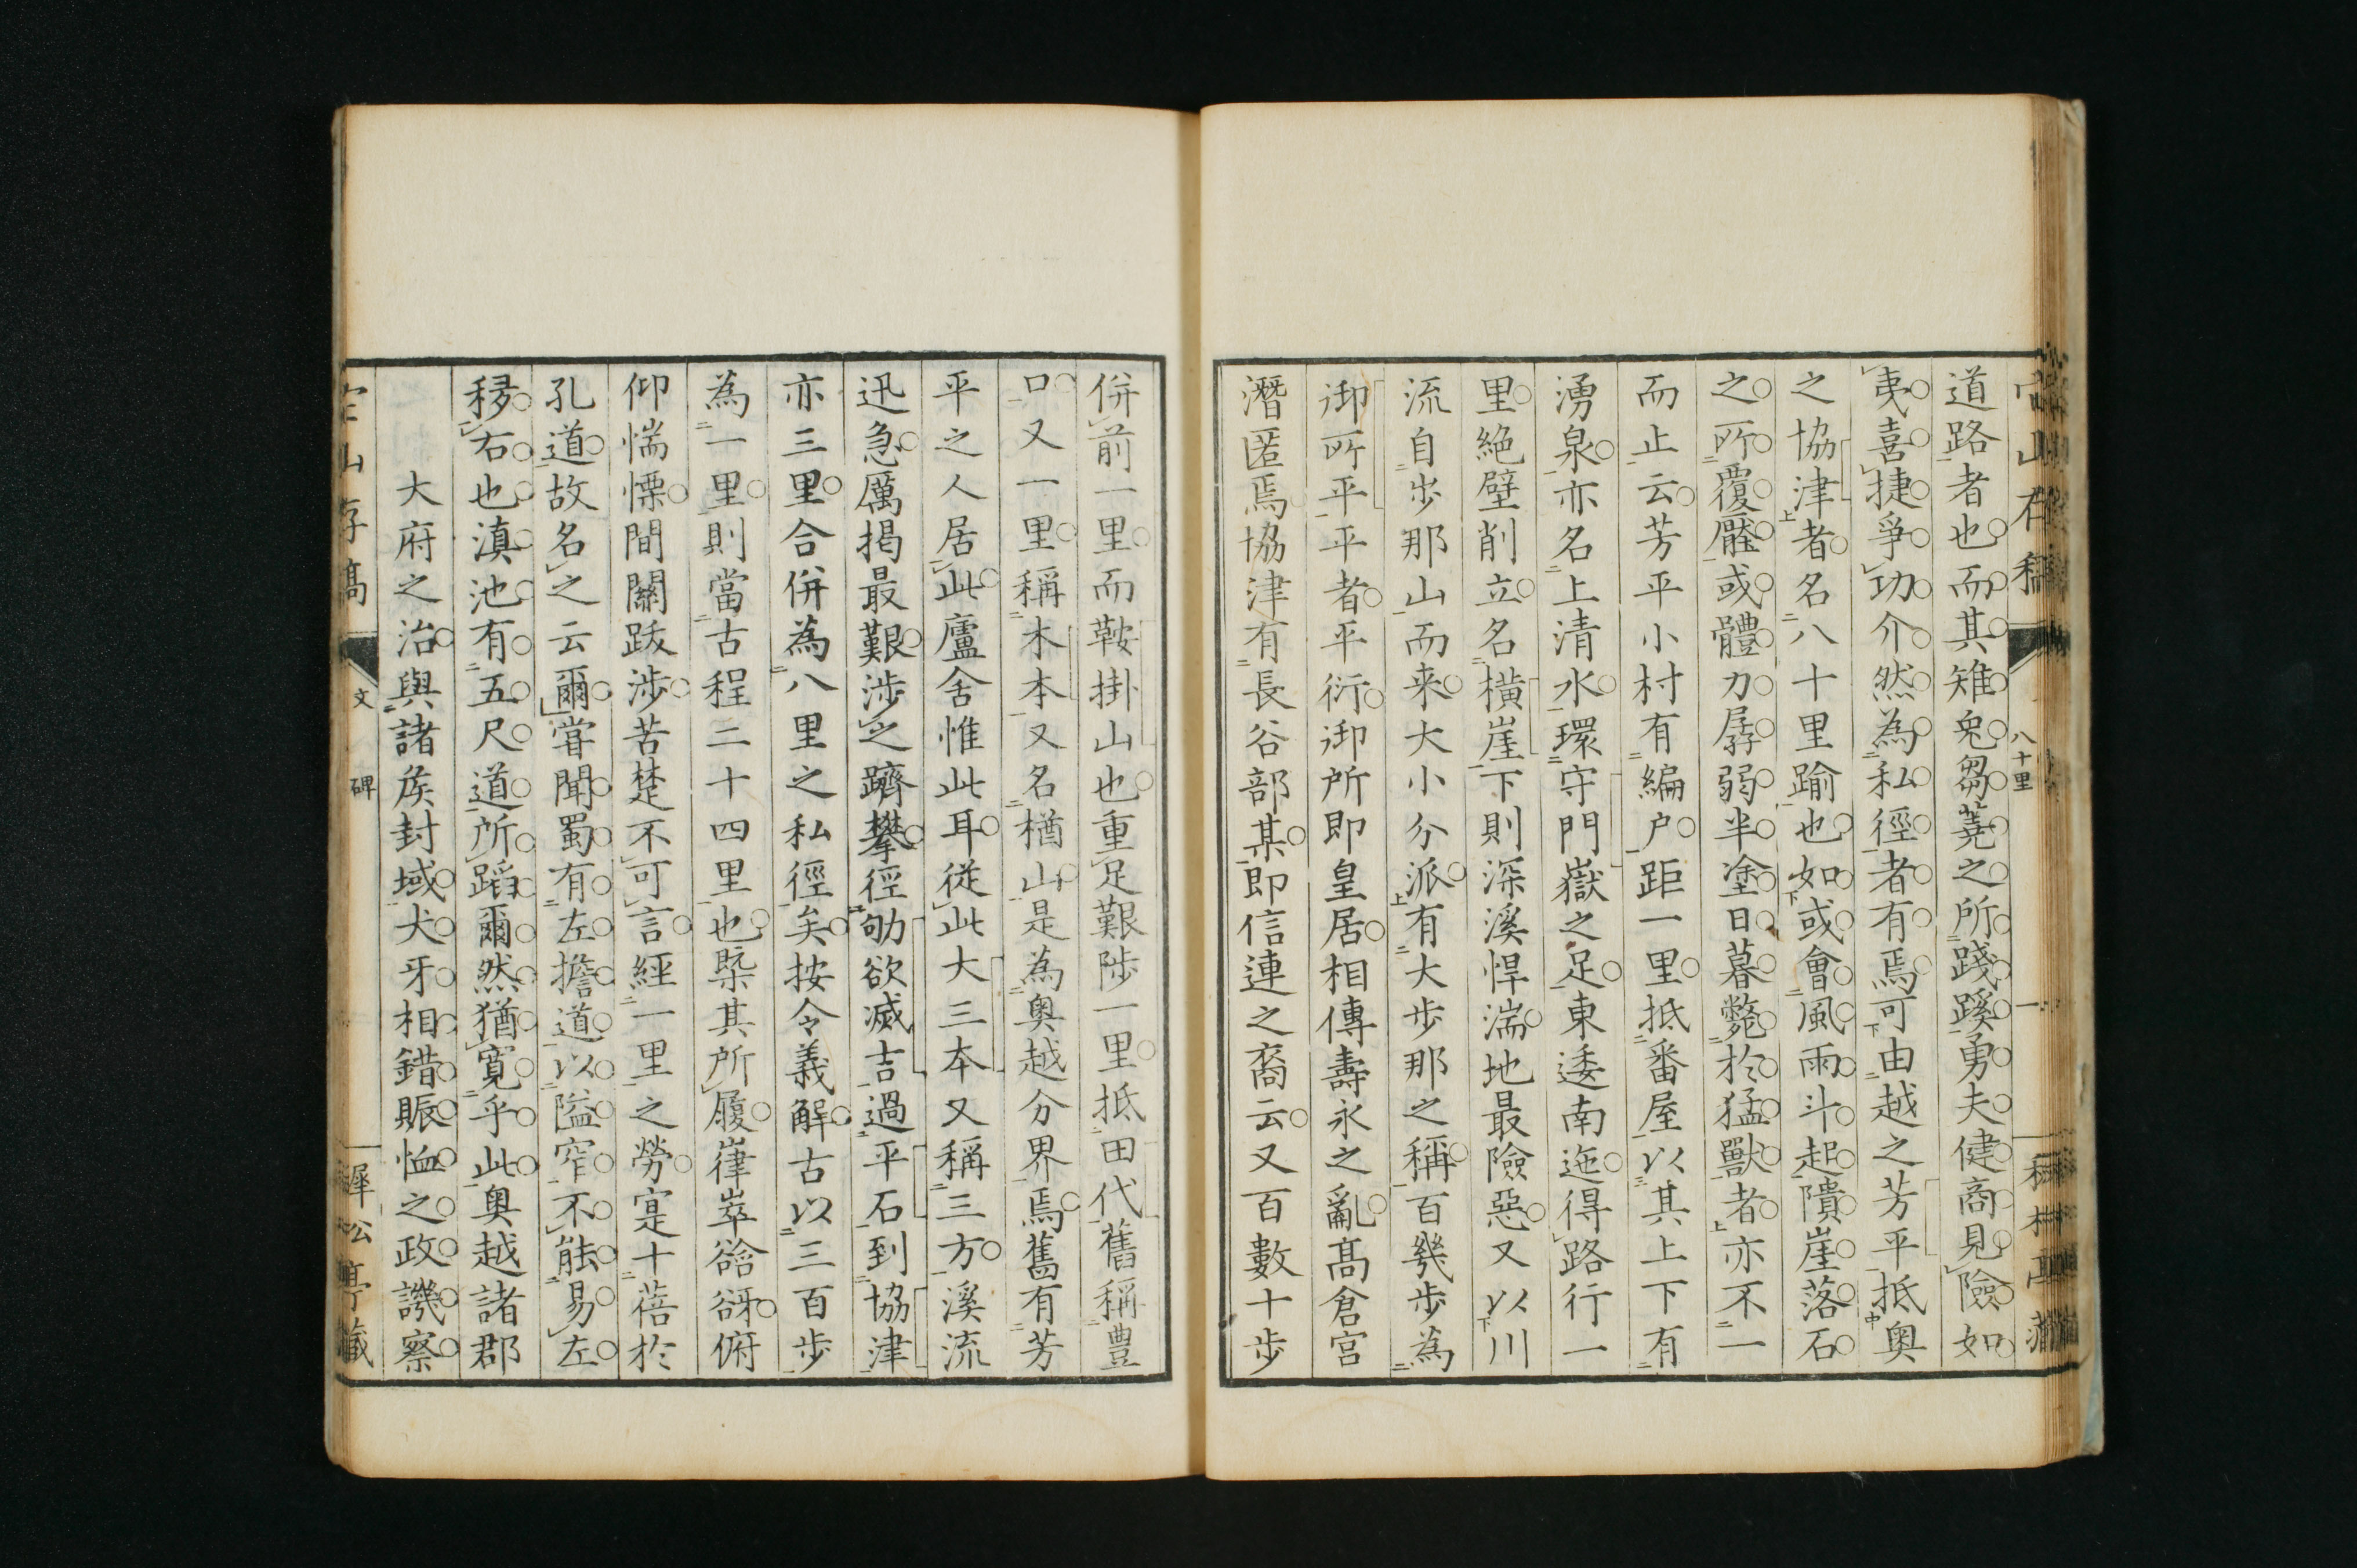 道路者也而其雉兔芻蕘之所踐蹊勇夫健商見險如
夷喜捷爭功介然為私徑者有焉可由越之芳平抵奧
之協津者名八十里踰也如或會風雨斗起隤崖落石
之所覆壓或體力孱弱半塗日暮斃於猛獸者亦不一
而止云芳平小村有編户距一里抵番屋以其上下有
湧泉亦名上清水環守門嶽之足東逶南迤得路行一
里絶壁削立名橫崖下則深溪悍湍地最險惡又以川
流自步那山而来大小分派有大步那之稱百幾步為
御所平平者平衍御所即皇居相傳壽永之亂髙倉宮
潛匿焉協津有長谷部某即信連之裔云又百數十步
八十里
一
併前一里而鞍掛山也重足艱陟一里抵田代舊稱豊
口又一里稱木本又名楢山是為奧越分界焉舊有芳
平之人居此廬舍惟此耳従此大三本又稱三方溪流
迅急厲揭最艱涉之躋攀徑劬欲滅吉過平石到協津
亦三里合併為八里之私徑矣按令義解古以三百步
為一里則當古程二十四里也槩其所履嵂崒谽谺俯
仰惴慄間關跋涉苦楚不可言經一里之勞寔十蓓於
孔道故名之云爾甞聞蜀有左擔道以隘窄不能易左
移右也滇池有五尺道所蹈爾然猶寬乎此奧越諸郡
大府之治與諸矦封域犬牙相錯賑恤之政譏察
文
碑